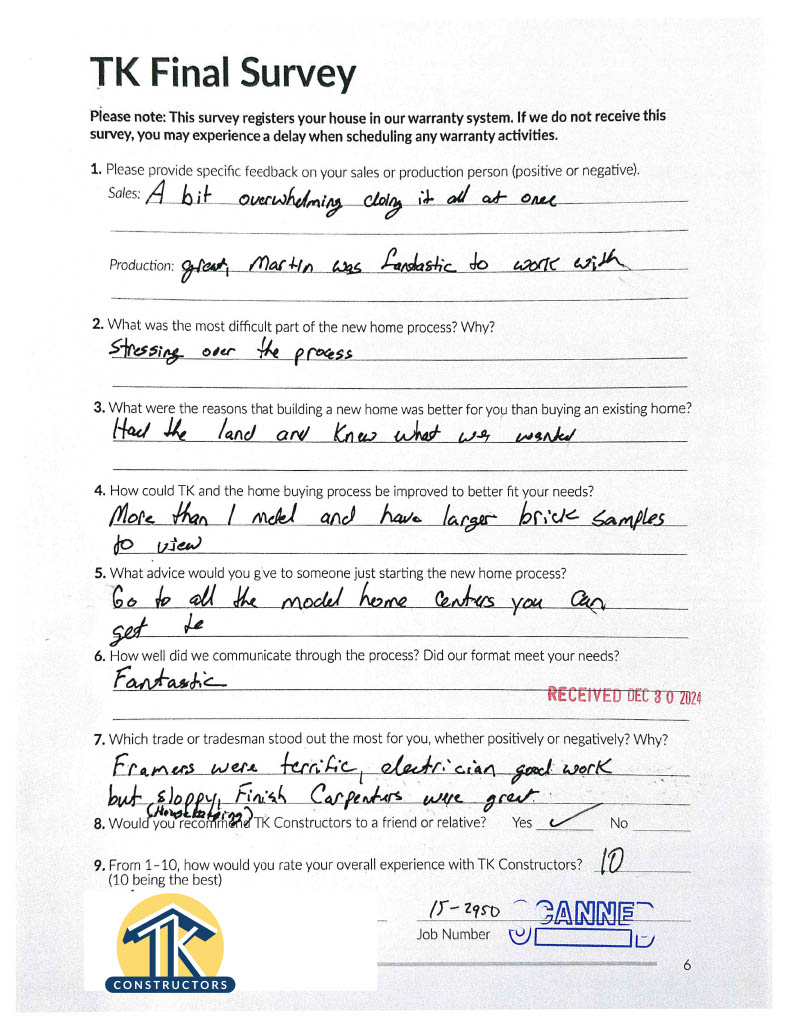 TK Final Survey
Please note: This survey registers your house in our warranty system. If we do not receive this
survey, you may experience a delay when scheduling any warranty activities.
1. Please provide specific feedback on your sales or production person (positive or negative).
Sales: A bit overwhelming doing it all at once
Production: great, Martin was fantastic to work with
2. What was the most difficult part of the new home process? Why?
Stressing over the process
3. What were the reasons that building a new home was better for you than buying an existing home?
Had the land and knew what we wanted
4. How could TK and the home buying process be improved to better fit your needs?
More than 1 model and have larger brick samples
to view
5. What advice would you give to someone just starting the new home process?
Go to all the model home centers you can
get to
6. How well did we communicate through the process? Did our format meet your needs?
Fantastic
RECEIVED DEC 30 2024
7. Which trade or tradesman stood out the most for you, whether positively or negatively? Why?
Framers were terrific, electrician good work
but sloppy, Finish Carpenters were great.
(Housekeeping)
8. Would you recommend TK Constructors to a friend or relative? Yes ✓ No
9. From 1-10, how would you rate your overall experience with TK Constructors? 10
(10 being the best)
15-2950
Job Number
CANNE
TK
CONSTRUCTORS
6